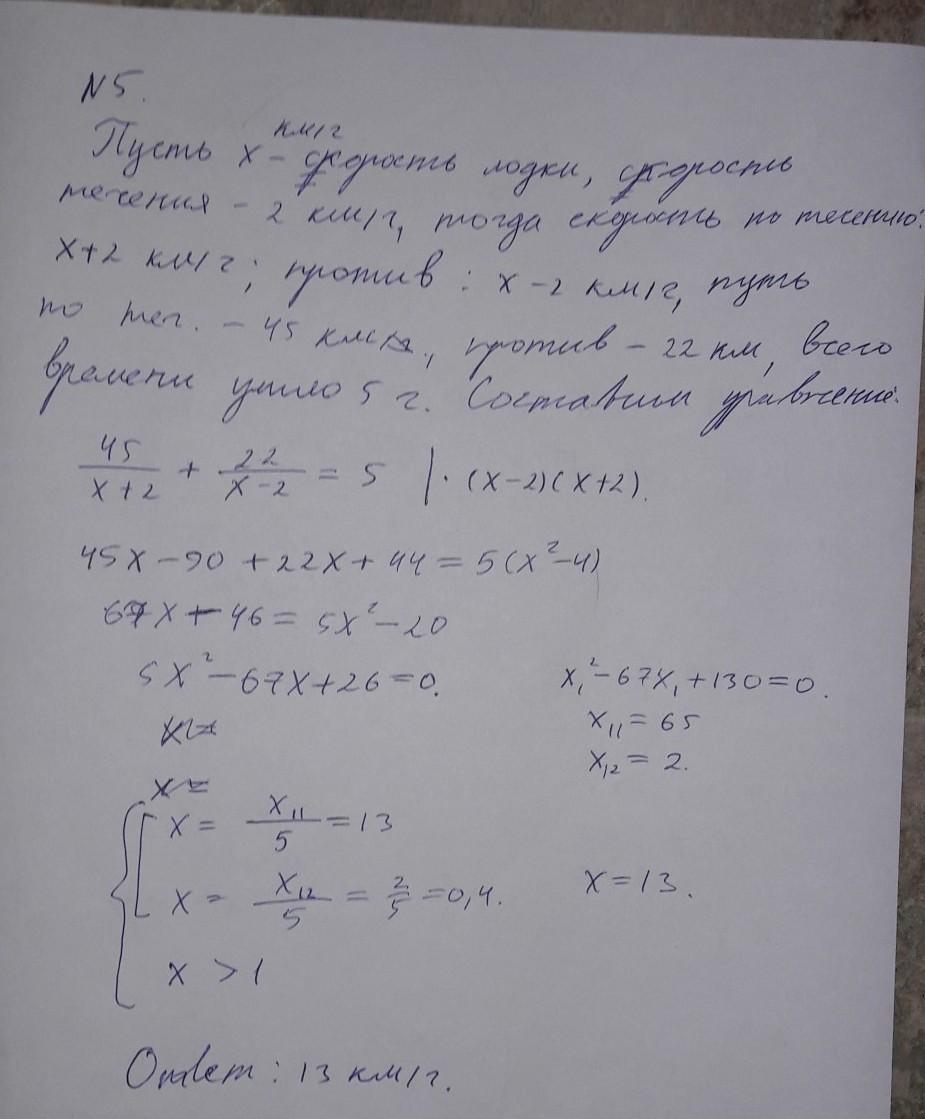 N5.
км/г
Пусть x - скорость лодки, скорость
течения - 2 км/г, тогда скорость по течению:
x+2 км/г; против: x-2 км/г, путь
по теч. - 45 км, против - 22 км, всего
времени ушло 5 г. Составим уравнение:
45/(x+2) + 22/(x-2) = 5 | · (x-2)(x+2).
45x-90+22x+44=5(x²-4)
67x-46=5x²-20
5x²-67x+26=0.
x=
x=
x₁²-67x₁+130=0.
x₁₁=65
x₁₂=2.
x = x₁₁/5 = 13
x = x₁₂/5 = 2/5 = 0,4.
x > 1
x=13.
Ответ: 13 км/г.